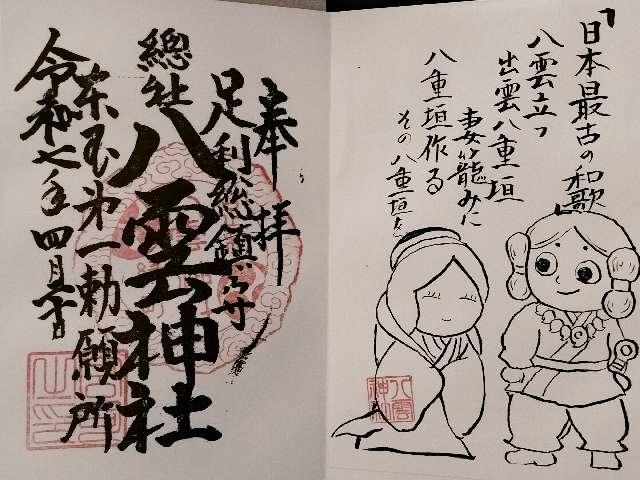 「日本最古の和歌」
八雲立つ
出雲八重垣
妻籠みに
八重垣作る
その八重垣を
八雲神社
奉拝
足利総鎮守
總社
八雲神社
東国第一勅願所
令和七年四月廿日